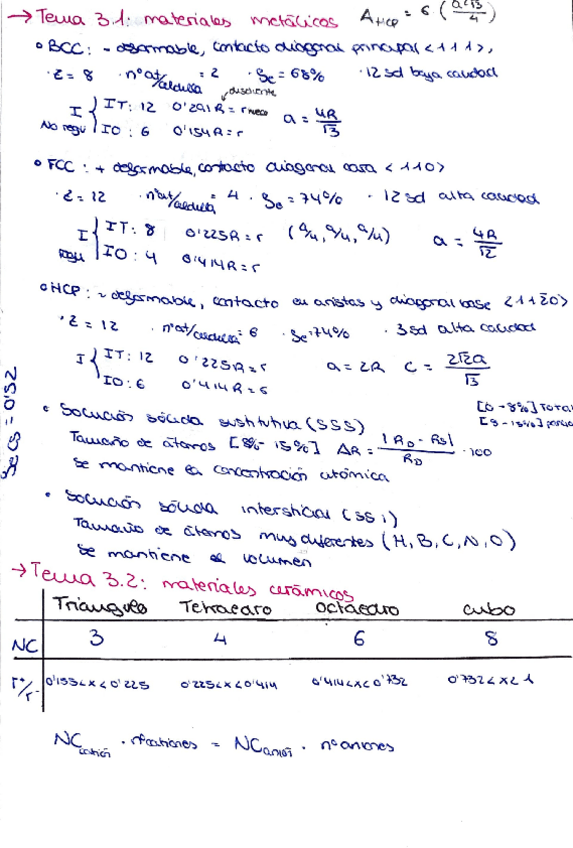 →Tema 3.1: materiales metálicos A_HCP = 6 (a²√3/4)
• BCC: - deformable, contacto diagonal principal <111>,
· Z = 8 · nºat/celdilla = 2 · δe = 68% · 12 sd baja calidad
disolvente
I { IT: 12 0'291R = r hueco a = 4R/√3
No regu IO: 6 0'154R = r
• FCC: + deformable, contacto diagonal cara <110>
· Z = 12 nºat/celdilla = 4 · δe = 74% · 12 sd alta calidad
I { IT: 8 0'225R = r (a/4, a/4, a/4) a = 4R/√2
regu IO: 4 0'414R = r
• HCP: ~ deformable, contacto en aristas y diagonal base <112̄0>
· Z = 12 · nºat/celdilla = 6 · δe = 74% · 3 sd alta calidad
I { IT: 12 0'225R = r a = 2R c = 2√2a/√3
IO: 6 0'414R = r
δe CS = 0'52
• Solución sólida sustitutiva (SSS) [0 - 8%] Total
Tamaño de átomos [8% - 15%] ΔR = |R_D - Rs|/R_D · 100 [9 - 15%] parcial
Se mantiene la concentración atómica
• Solución sólida intersticial (SSi)
Tamaño de átomos muy diferentes (H, B, C, N, O)
Se mantiene el volumen
→Tema 3.2: materiales cerámicos
Triángulo Tetraedro Octaedro Cubo
NC 3 4 6 8
r⁺/r⁻ 0'155<x<0'225 0'225<x<0'414 0'414<x<0'732 0'732<x<1
NC catión · nºcationes = NC anión · nºaniones